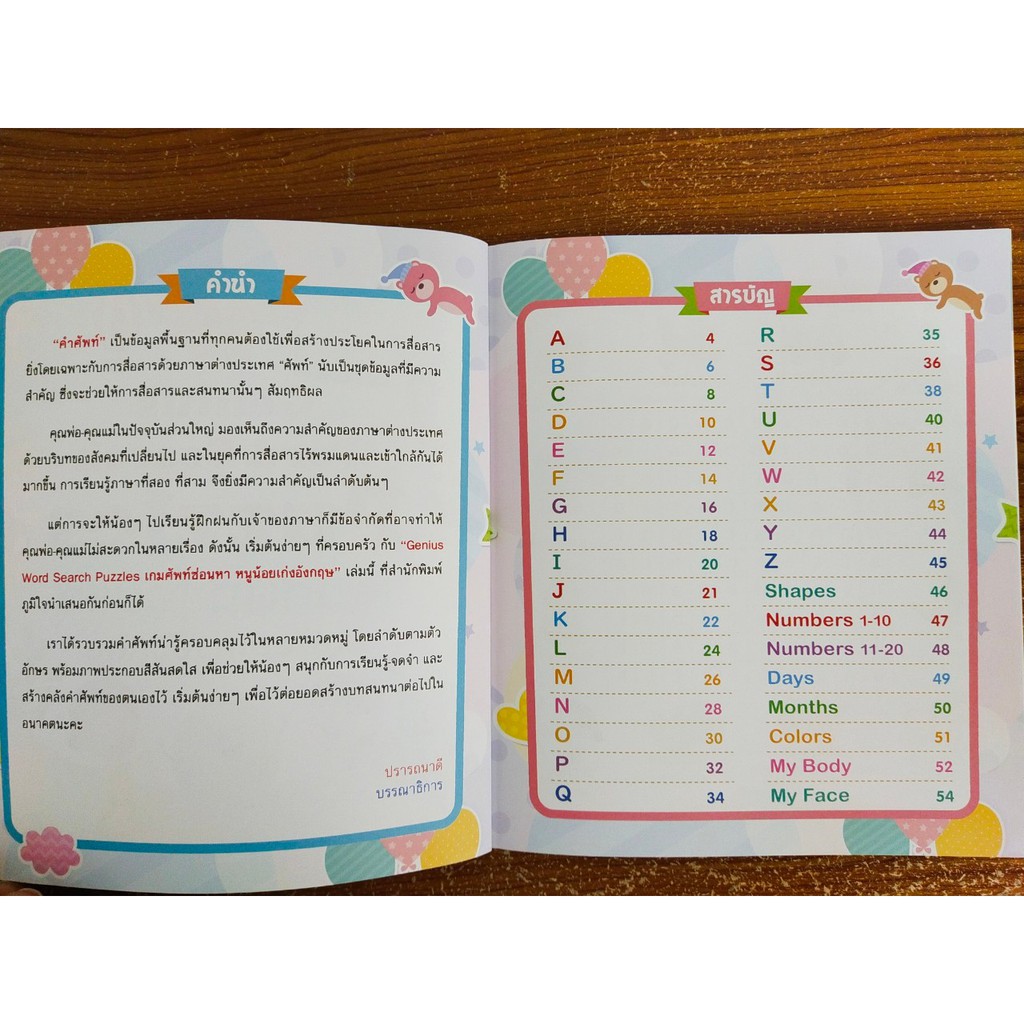 คำนำ
“คำศัพท์” เป็นข้อมูลพื้นฐานที่ทุกคนต้องใช้เพื่อสร้างประโยคในการสื่อสาร
ยิ่งโดยเฉพาะกับการสื่อสารด้วยภาษาต่างประเทศ “ศัพท์” นับเป็นชุดข้อมูลที่มีความ
สำคัญ ซึ่งจะช่วยให้การสื่อสารและสนทนานั้นๆ สัมฤทธิผล
คุณพ่อ-คุณแม่ในปัจจุบันส่วนใหญ่ มองเห็นถึงความสำคัญของภาษาต่างประเทศ
ด้วยบริบทของสังคมที่เปลี่ยนไป และในยุคที่การสื่อสารไร้พรมแดนและเข้าใกล้กันได้
มากขึ้น การเรียนรู้ภาษาที่สอง ที่สาม จึงยิ่งมีความสำคัญเป็นลำดับต้นๆ
แต่การจะให้น้องๆ ไปเรียนรู้ฝึกฝนกับเจ้าของภาษาก็มีข้อจำกัดที่อาจทำให้
คุณพ่อ-คุณแม่ไม่สะดวกในหลายเรื่อง ดังนั้น เริ่มต้นง่ายๆ ที่ครอบครัว กับ “Genius
Word Search Puzzles เกมศัพท์ซ่อนหา หนูน้อยเก่งอังกฤษ” เล่มนี้ ที่สำนักพิมพ์
ภูมิใจนำเสนอกันก่อนก็ได้
เราได้รวบรวมคำศัพท์น่ารู้ครอบคลุมไว้ในหลายหมวดหมู่ โดยลำดับตามตัว
อักษร พร้อมภาพประกอบสีสันสดใส เพื่อช่วยให้น้องๆ สนุกกับการเรียนรู้-จดจำ และ
สร้างคลังคำศัพท์ของตนเองไว้ เริ่มต้นง่ายๆ เพื่อไว้ต่อยอดสร้างบทสนทนาต่อไปใน
อนาคตนะคะ
ปรารถนาดี
บรรณาธิการ
สารบัญ
A 4
B 6
C 8
D 10
E 12
F 14
G 16
H 18
I 20
J 21
K 22
L 24
M 26
N 28
O 30
P 32
Q 34
R 35
S 36
T 38
U 40
V 41
W 42
X 43
Y 44
Z 45
Shapes 46
Numbers 1-10 47
Numbers 11-20 48
Days 49
Months 50
Colors 51
My Body 52
My Face 54